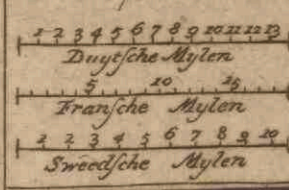 1 2 3 4 5 6 7 8 9 10 11 12 13
Duytſche Mylen
5 10 15
Franſche Mylen
1 2 3 4 5 6 7 8 9 10
Sweedſche Mylen